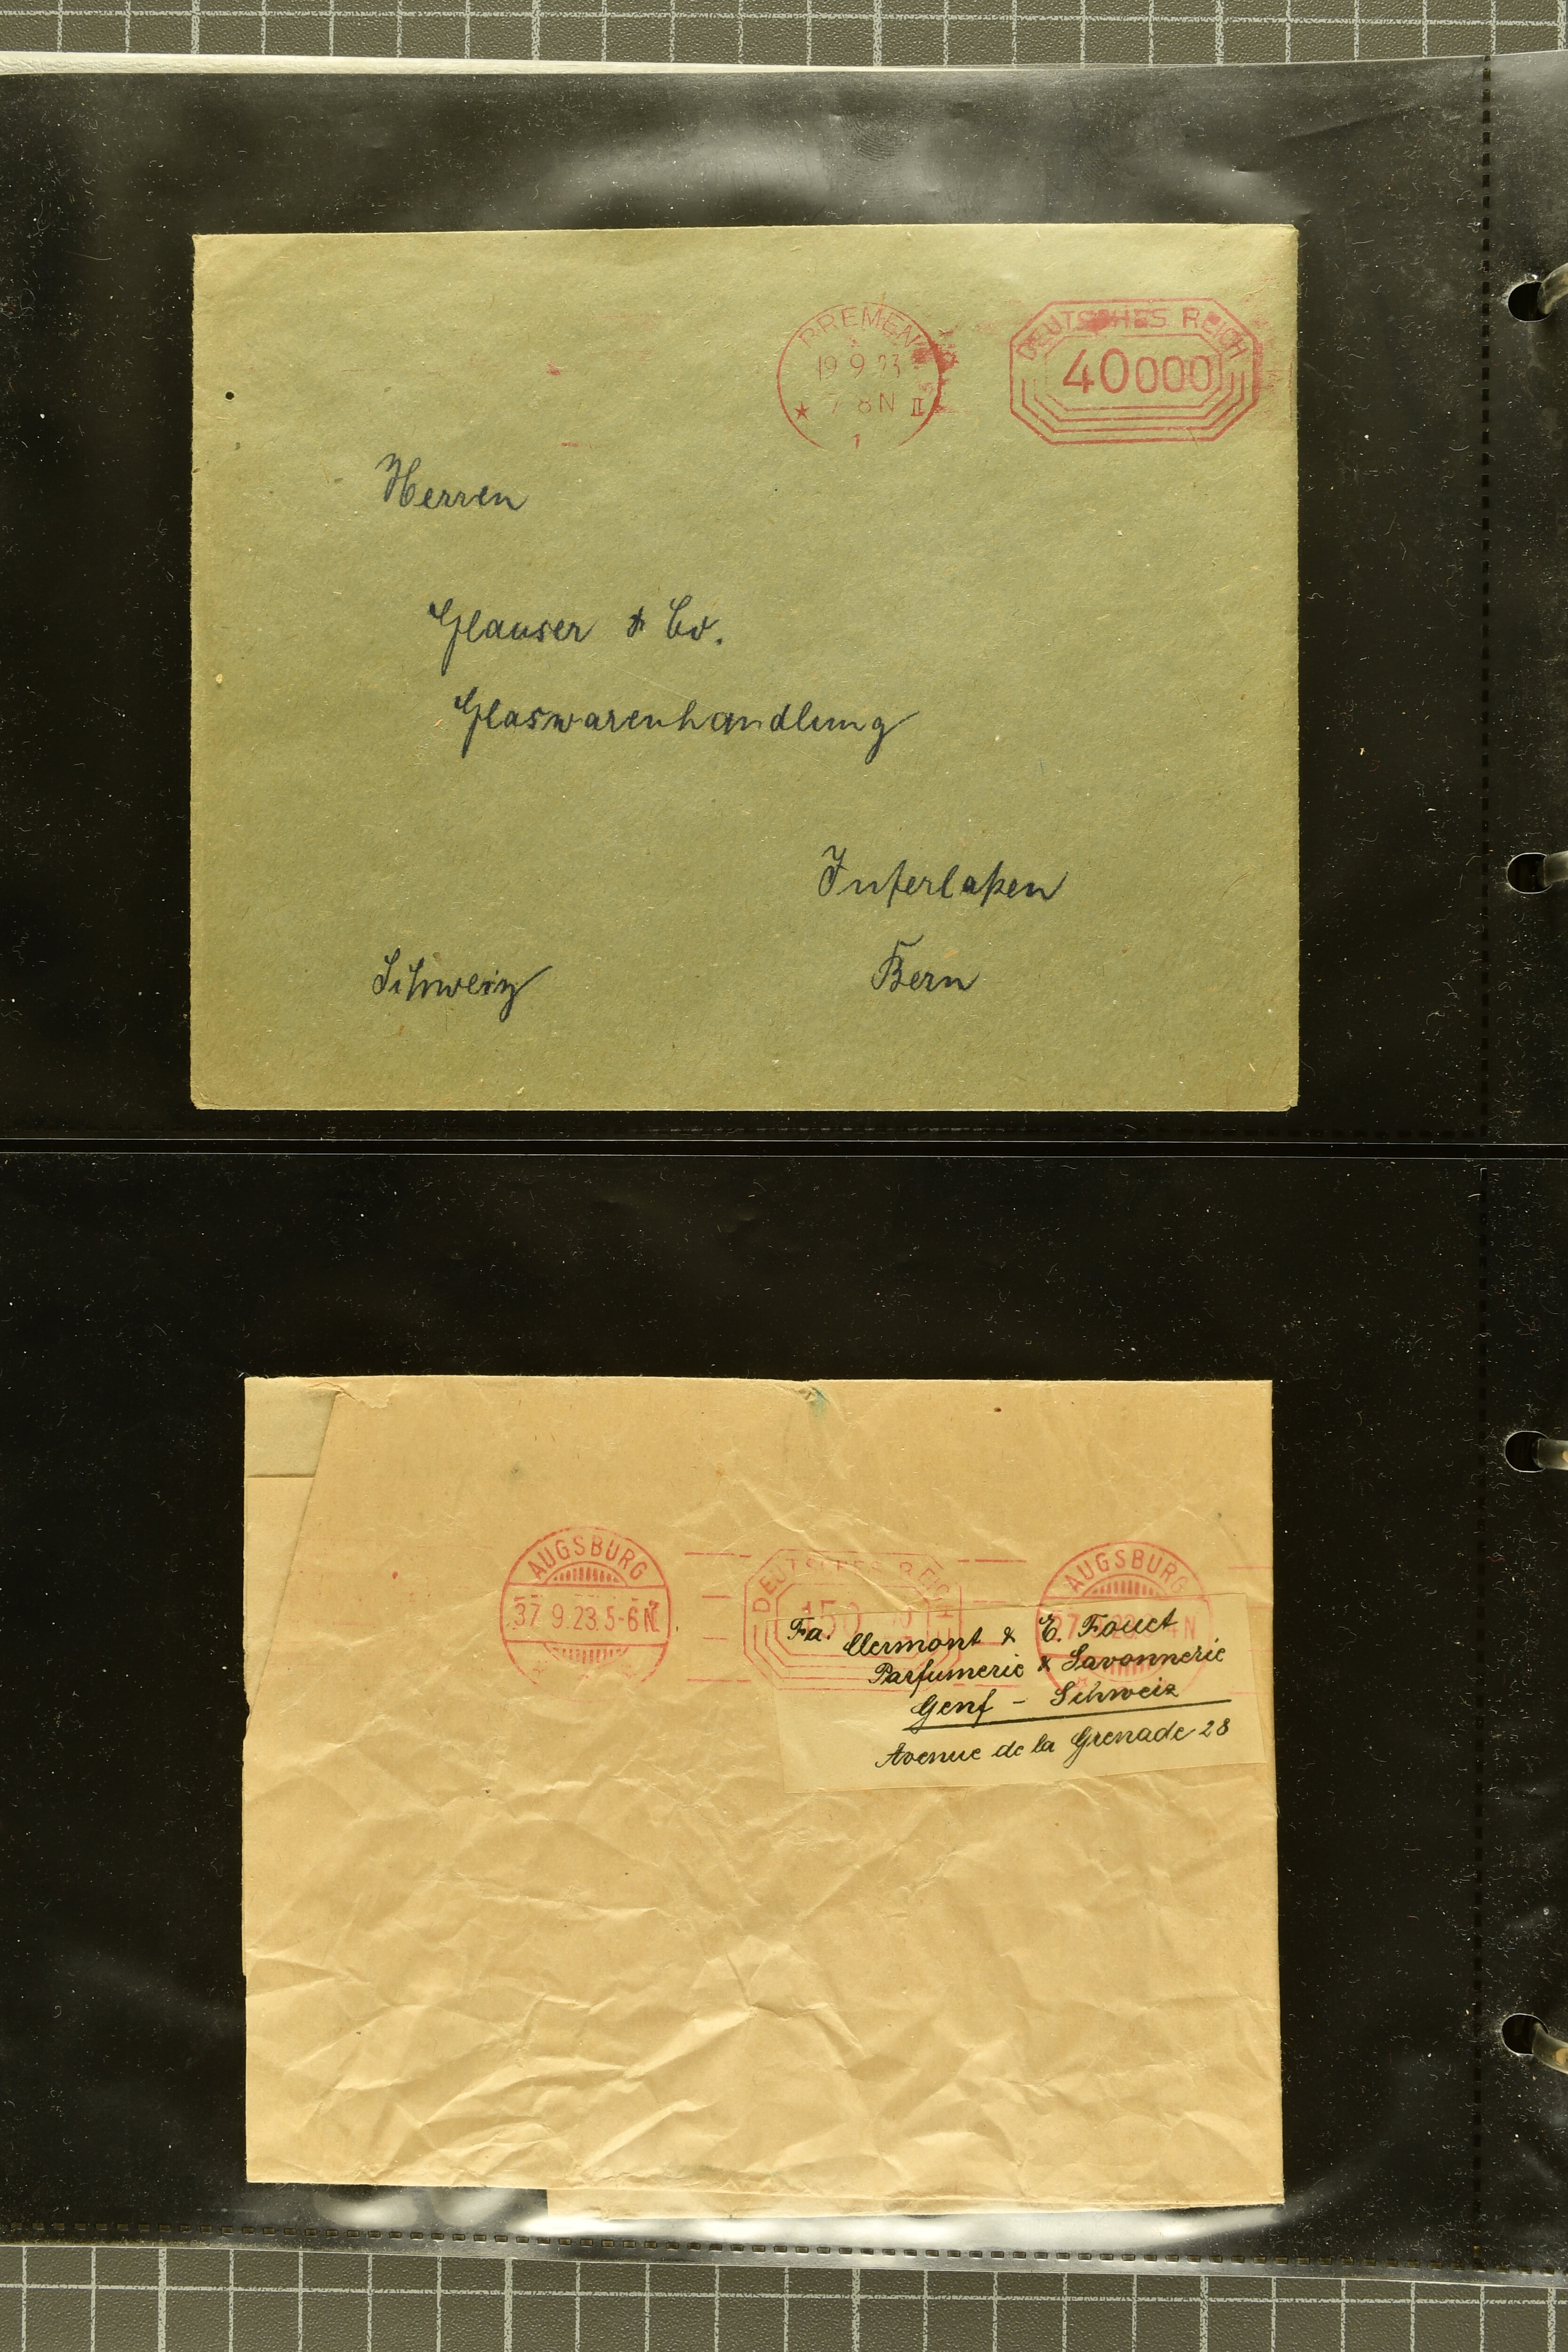 BREMEN
19.9.23
7-8N II
1
DEUTSCHES REICH
40000
Herren
Glauser & Co.
Glaswarenhandlung
Interlaken
Schweiz
Bern
AUGSBURG
37 9.23.5-6N
DEUTSCHES REICH
AUGSBURG
Fa. Clermont & E. Fouet
Parfumerie & Savonnerie
Genf - Schweiz
Avenue de la Grenade 28